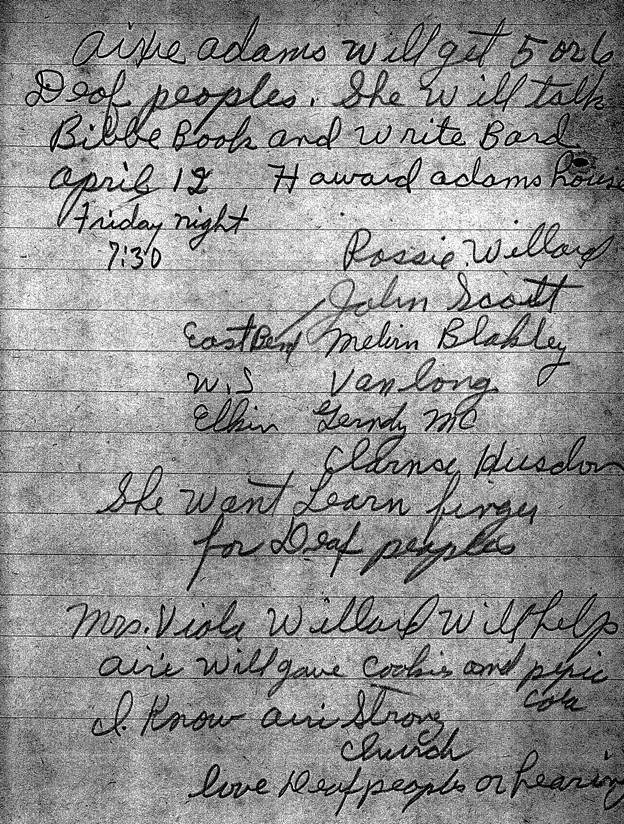 airie adams will get 5 or 6
Deaf peoples. She will talk
Bibbe Book and Write Bard
april 12 Haward adams house
Friday night
7:30
Rossie Willard
John Scott
East Bend Melvin Blakley
W.S Van long
Elkin Gerndy MC
Clarnse Husdon
She want Learn finger
for Deaf peoples
Mrs. Viola Willard Will help
airie will gave cookies and pepic
cola
I Know airi Strong
church
love Deaf peoples or hearing